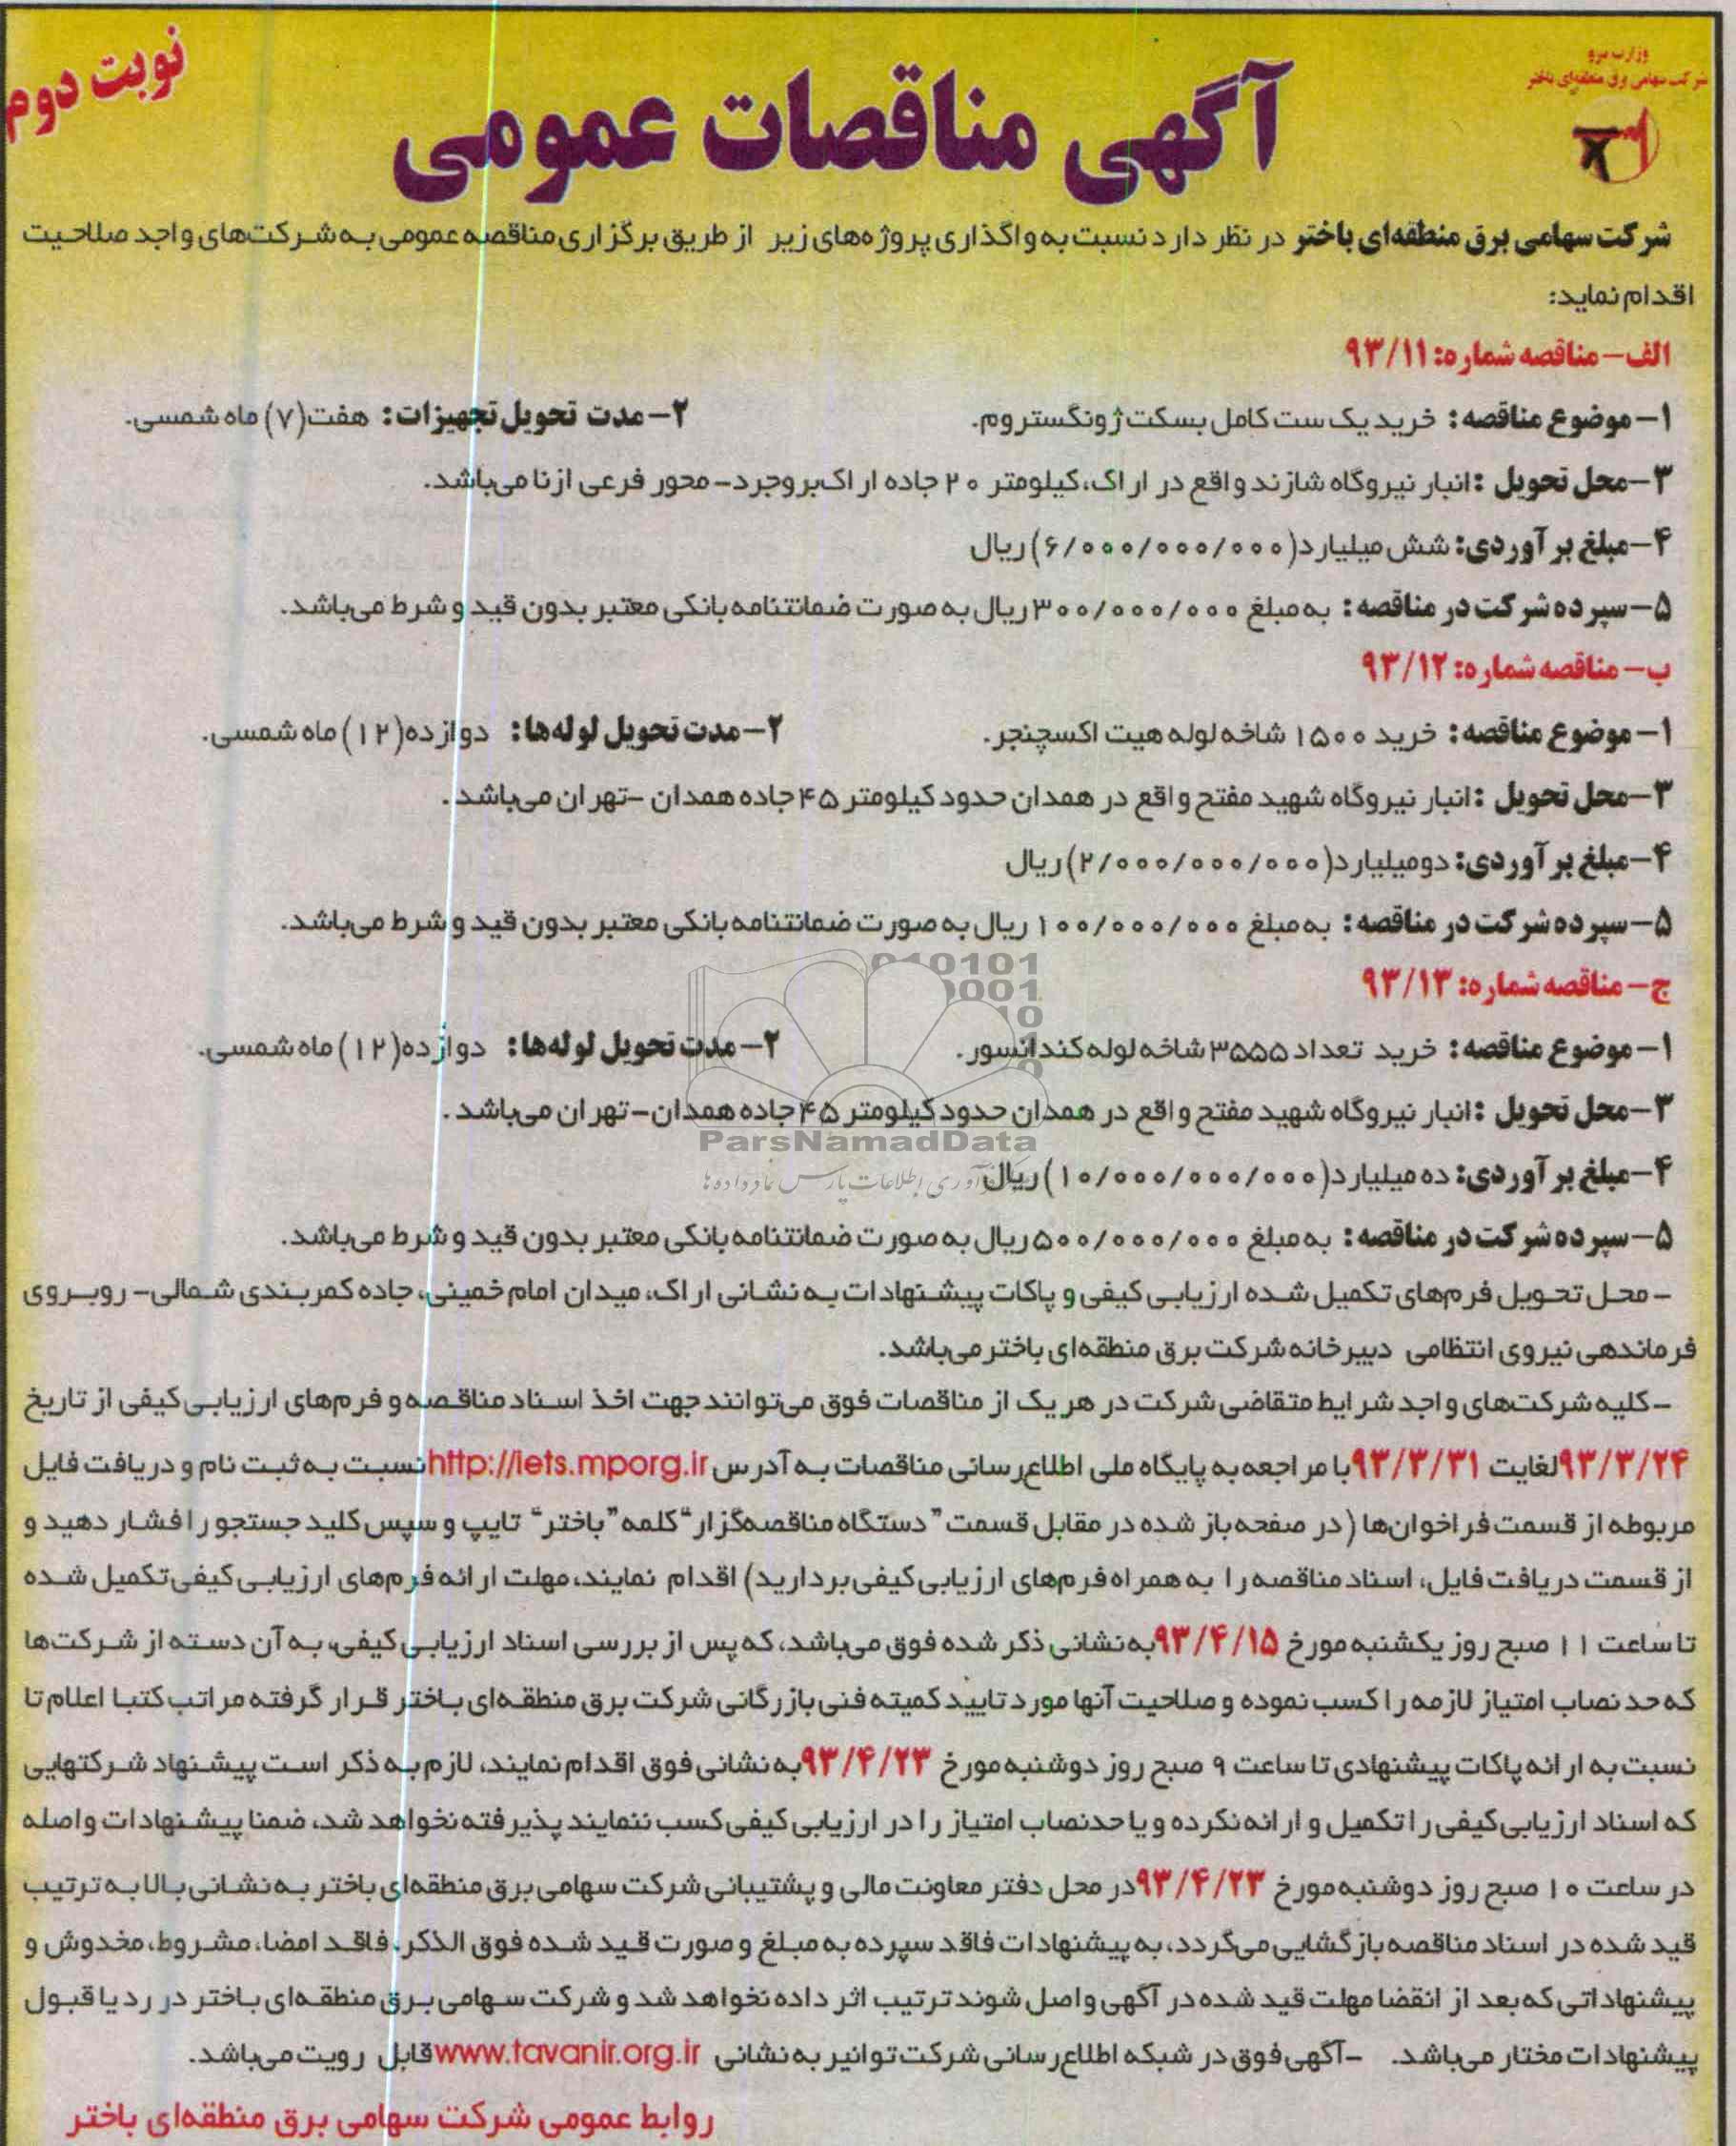 وزارت نیرو
شرکت سهامی برق منطقه‌ای باختر
نوبت دوم
آگهی مناقصات عمومی
شرکت سهامی برق منطقه‌ای باختر در نظر دارد نسبت به واگذاری پروژه‌های زیر از طریق برگزاری مناقصه عمومی به شرکت‌های واجد صلاحیت
اقدام نماید:
الف– مناقصه شماره: ۹۳/۱۱
۱– موضوع مناقصه: خرید یک ست کامل بسکت ژونگستروم. ۲– مدت تحویل تجهیزات: هفت(۷) ماه شمسی.
۳–محل تحویل :انبار نیروگاه شازند واقع در اراک،کیلومتر ۲۰ جاده اراک‌بروجرد– محور فرعی ازنا می‌باشد.
۴–مبلغ برآوردی: شش میلیارد(۶/۰۰۰/۰۰۰/۰۰۰)ریال
۵–سپرده شرکت در مناقصه: به مبلغ ۳۰۰/۰۰۰/۰۰۰ریال به صورت ضمانتنامه بانکی معتبر بدون قید و شرط می‌باشد.
ب– مناقصه شماره: ۹۳/۱۲
۱– موضوع مناقصه: خرید ۱۵۰۰ شاخه لوله هیت اکسچنجر. ۲– مدت تحویل لوله‌ها: دوازده(۱۲) ماه شمسی.
۳–محل تحویل :انبار نیروگاه شهید مفتح واقع در همدان حدود کیلومتر ۴۵جاده همدان –تهران می‌باشد.
۴–مبلغ برآوردی: دومیلیارد(۲/۰۰۰/۰۰۰/۰۰۰)ریال
۵–سپرده شرکت در مناقصه: به مبلغ ۱۰۰/۰۰۰/۰۰۰ ریال به صورت ضمانتنامه بانکی معتبر بدون قید و شرط می‌باشد.
ج– مناقصه شماره: ۹۳/۱۳
۱– موضوع مناقصه: خرید تعداد ۳۵۵۵شاخه لوله کندانسور. ۲– مدت تحویل لوله‌ها: دوازده(۱۲) ماه شمسی.
۳–محل تحویل :انبار نیروگاه شهید مفتح واقع در همدان حدود کیلومتر ۴۵جاده همدان–تهران می‌باشد.
ParsNamadData
۴–مبلغ برآوردی: ده میلیارد(۱۰/۰۰۰/۰۰۰/۰۰۰)ریال
۵–سپرده شرکت در مناقصه: به مبلغ ۵۰۰/۰۰۰/۰۰۰ریال به صورت ضمانتنامه بانکی معتبر بدون قید و شرط می‌باشد.
– محل تحویل فرمهای تکمیل شده ارزیابی کیفی و پاکات پیشنهادات به نشانی اراک، میدان امام خمینی، جاده کمربندی شمالی– روبروی
فرماندهی نیروی انتظامی دبیرخانه شرکت برق منطقه‌ای باختر می‌باشد.
–کلیه شرکت‌های واجد شرایط متقاضی شرکت در هر یک از مناقصات فوق می‌توانند جهت اخذ اسناد مناقصه و فرم‌های ارزیابی کیفی از تاریخ
۹۳/۳/۲۴لغایت ۹۳/۳/۳۱با مراجعه به پایگاه ملی اطلاع‌رسانی مناقصات به آدرس http://iets.mporg.irنسبت به ثبت نام و دریافت فایل
مربوطه از قسمت فراخوان‌ها (در صفحه باز شده در مقابل قسمت "دستگاه مناقصه‌گزار"کلمه"باختر" تایپ و سپس کلید جستجو را فشار دهید و
از قسمت دریافت فایل، اسناد مناقصه را به همراه فرم‌های ارزیابی کیفی بردارید) اقدام نمایند، مهلت ارائه فرم‌های ارزیابی کیفی تکمیل شده
تا ساعت ۱۱ صبح روز یکشنبه مورخ ۹۳/۴/۱۵به نشانی ذکر شده فوق می‌باشد، که پس از بررسی اسناد ارزیابی کیفی، به آن دسته از شرکت‌ها
که حد نصاب امتیاز لازمه را کسب نموده و صلاحیت آنها مورد تایید کمیته فنی بازرگانی شرکت برق منطقه‌ای باختر قرار گرفته مراتب کتبا اعلام تا
نسبت به ارائه پاکات پیشنهادی تا ساعت ۹ صبح روز دوشنبه مورخ ۹۳/۴/۲۳به نشانی فوق اقدام نمایند، لازم به ذکر است پیشنهاد شرکتهایی
که اسناد ارزیابی کیفی را تکمیل و ارائه نکرده و یا حدنصاب امتیاز را در ارزیابی کیفی کسب ننمایند پذیرفته نخواهد شد، ضمنا پیشنهادات واصله
در ساعت ۱۰ صبح روز دوشنبه مورخ ۹۳/۴/۲۳در محل دفتر معاونت مالی و پشتیبانی شرکت سهامی برق منطقه‌ای باختر به نشانی بالا به ترتیب
قید شده در اسناد مناقصه بازگشایی می‌گردد، به پیشنهادات فاقد سپرده به مبلغ و صورت قید شده فوق الذکر، فاقد امضا، مشروط، مخدوش و
پیشنهاداتی که بعد از انقضا مهلت قید شده در آگهی واصل شوند ترتیب اثر داده نخواهد شد و شرکت سهامی برق منطقه‌ای باختر در رد یا قبول
پیشنهادات مختار می‌باشد. –آگهی فوق در شبکه اطلاع‌رسانی شرکت توانیر به نشانی www.tavanir.org.irقابل رویت می‌باشد.
روابط عمومی شرکت سهامی برق منطقه‌ای باختر